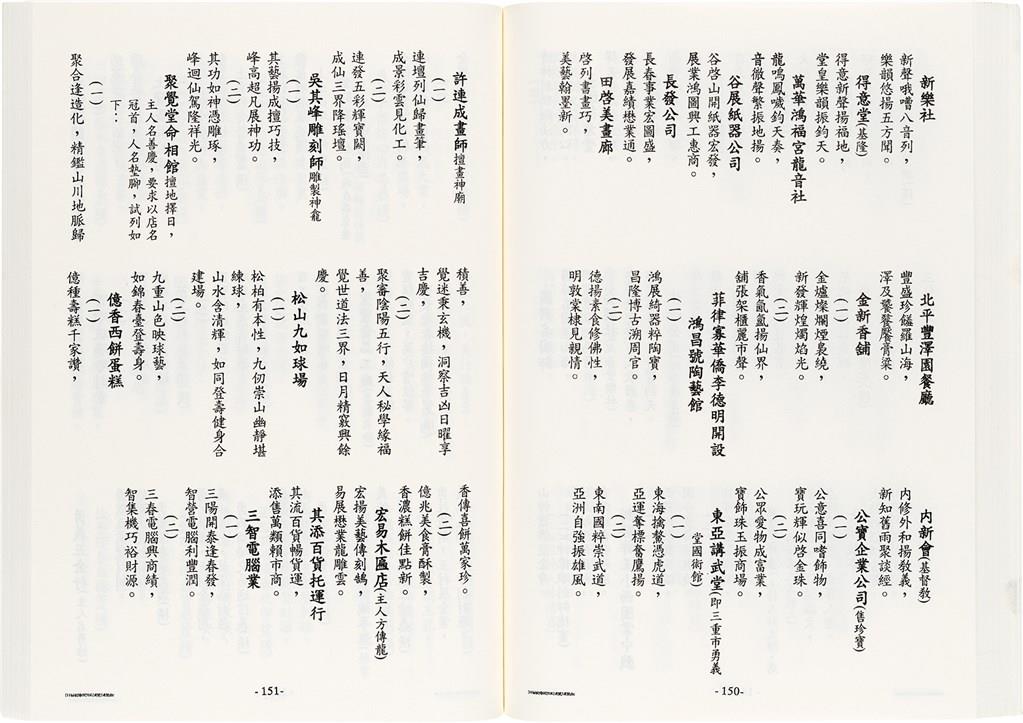 新樂社
新聲哦嚐八音列，
樂韻悠揚五方聞。
得意堂(基隆)
得意新聲揚福地，
堂皇樂韻振鈞天。
萬華鴻福宮龍音社
龍鳴鳳噦鈞天奏，
音徹聲繁振地揚。
谷展紙器公司
谷啓山開紙器宏發，
展業鴻圖興工惠商。
長發公司
長春事業宏圖盛，
發展嘉績懋業通。
田啓美畫廊
啓列書畫巧，
美藝翰墨新。
北平豐澤園餐廳
豐盛珍饈羅山海，
澤及饕餮饜膏粱。
金新香舖
(一)
金爐燦爛煙裊繞，
新發輝煌燭焰光。
(二)
香氣氤氳揚仙界，
舖張架櫃麗市聲。
菲律賓華僑李德明開設
鴻昌號陶藝館
(一)
鴻展綺器粹陶寶，
昌隆博古溯周官。
(二)
德揚素食修佛性，
明敦棠棣見親情。
內新會(基督教)
內修外和揚教義，
新知舊雨聚談經。
公寶企業公司(售珍寶)
(一)
公意喜同嗜飾物，
寶玩輝似啓金珠。
(二)
公眾愛物成富業，
寶飾珠玉振商場。
東亞講武堂(即三重市勇義
堂國術館)
(一)
東海擒鰲憑虎道，
亞運奪標奮鷹揚。
(二)
東南國粹崇武道，
亞洲自強振雄風。
-150-
許連成畫師擅畫神廟
(一)
連壇列仙歸畫筆，
成景彩雲見化工。
(二)
連發五彩輝寶闕，
成仙三界降瑤壇。
吳其峰雕刻師雕製神龕
(一)
其藝揚成擅巧技，
峰高超凡展神功。
(二)
其功如神憑雕琢，
峰迴仙駕隆祥光。
聚覺堂命相館擅地擇日，
主人名善慶，要求以店名
冠首，人名墊腳，試列如
下：
(一)
聚合逢造化，精鑑山川地脈歸
積善，
覺迷秉玄機，洞察吉凶日曜享
吉慶，
(二)
聚審陰陽五行，天人秘學緣福
善，
覺世道法三界，日月精竅興餘
慶。
松山九如球場
(一)
松柏有本性，九仞崇山幽靜堪
練球，
山水含清輝，如同登壽健身合
建場。
(二)
九重山色映球藝，
如錦春臺登壽身。
億香西餅蛋糕
(一)
億種壽糕千家讚，
香傳喜餅萬家珍。
(二)
億兆美食膏酥製，
香濃糕餅佳點新。
宏易木匾店(主人方傳龍)
宏揚美藝傳刻鵠，
易展懋業龍雕雲。
其添百貨托運行
其流百貨暢貨運，
添售萬類賴市商。
三智電腦業
(一)
三陽開泰逢春發，
智營電腦利豐潤。
(二)
三春電腦興商績，
智集機巧裕財源。
-151-